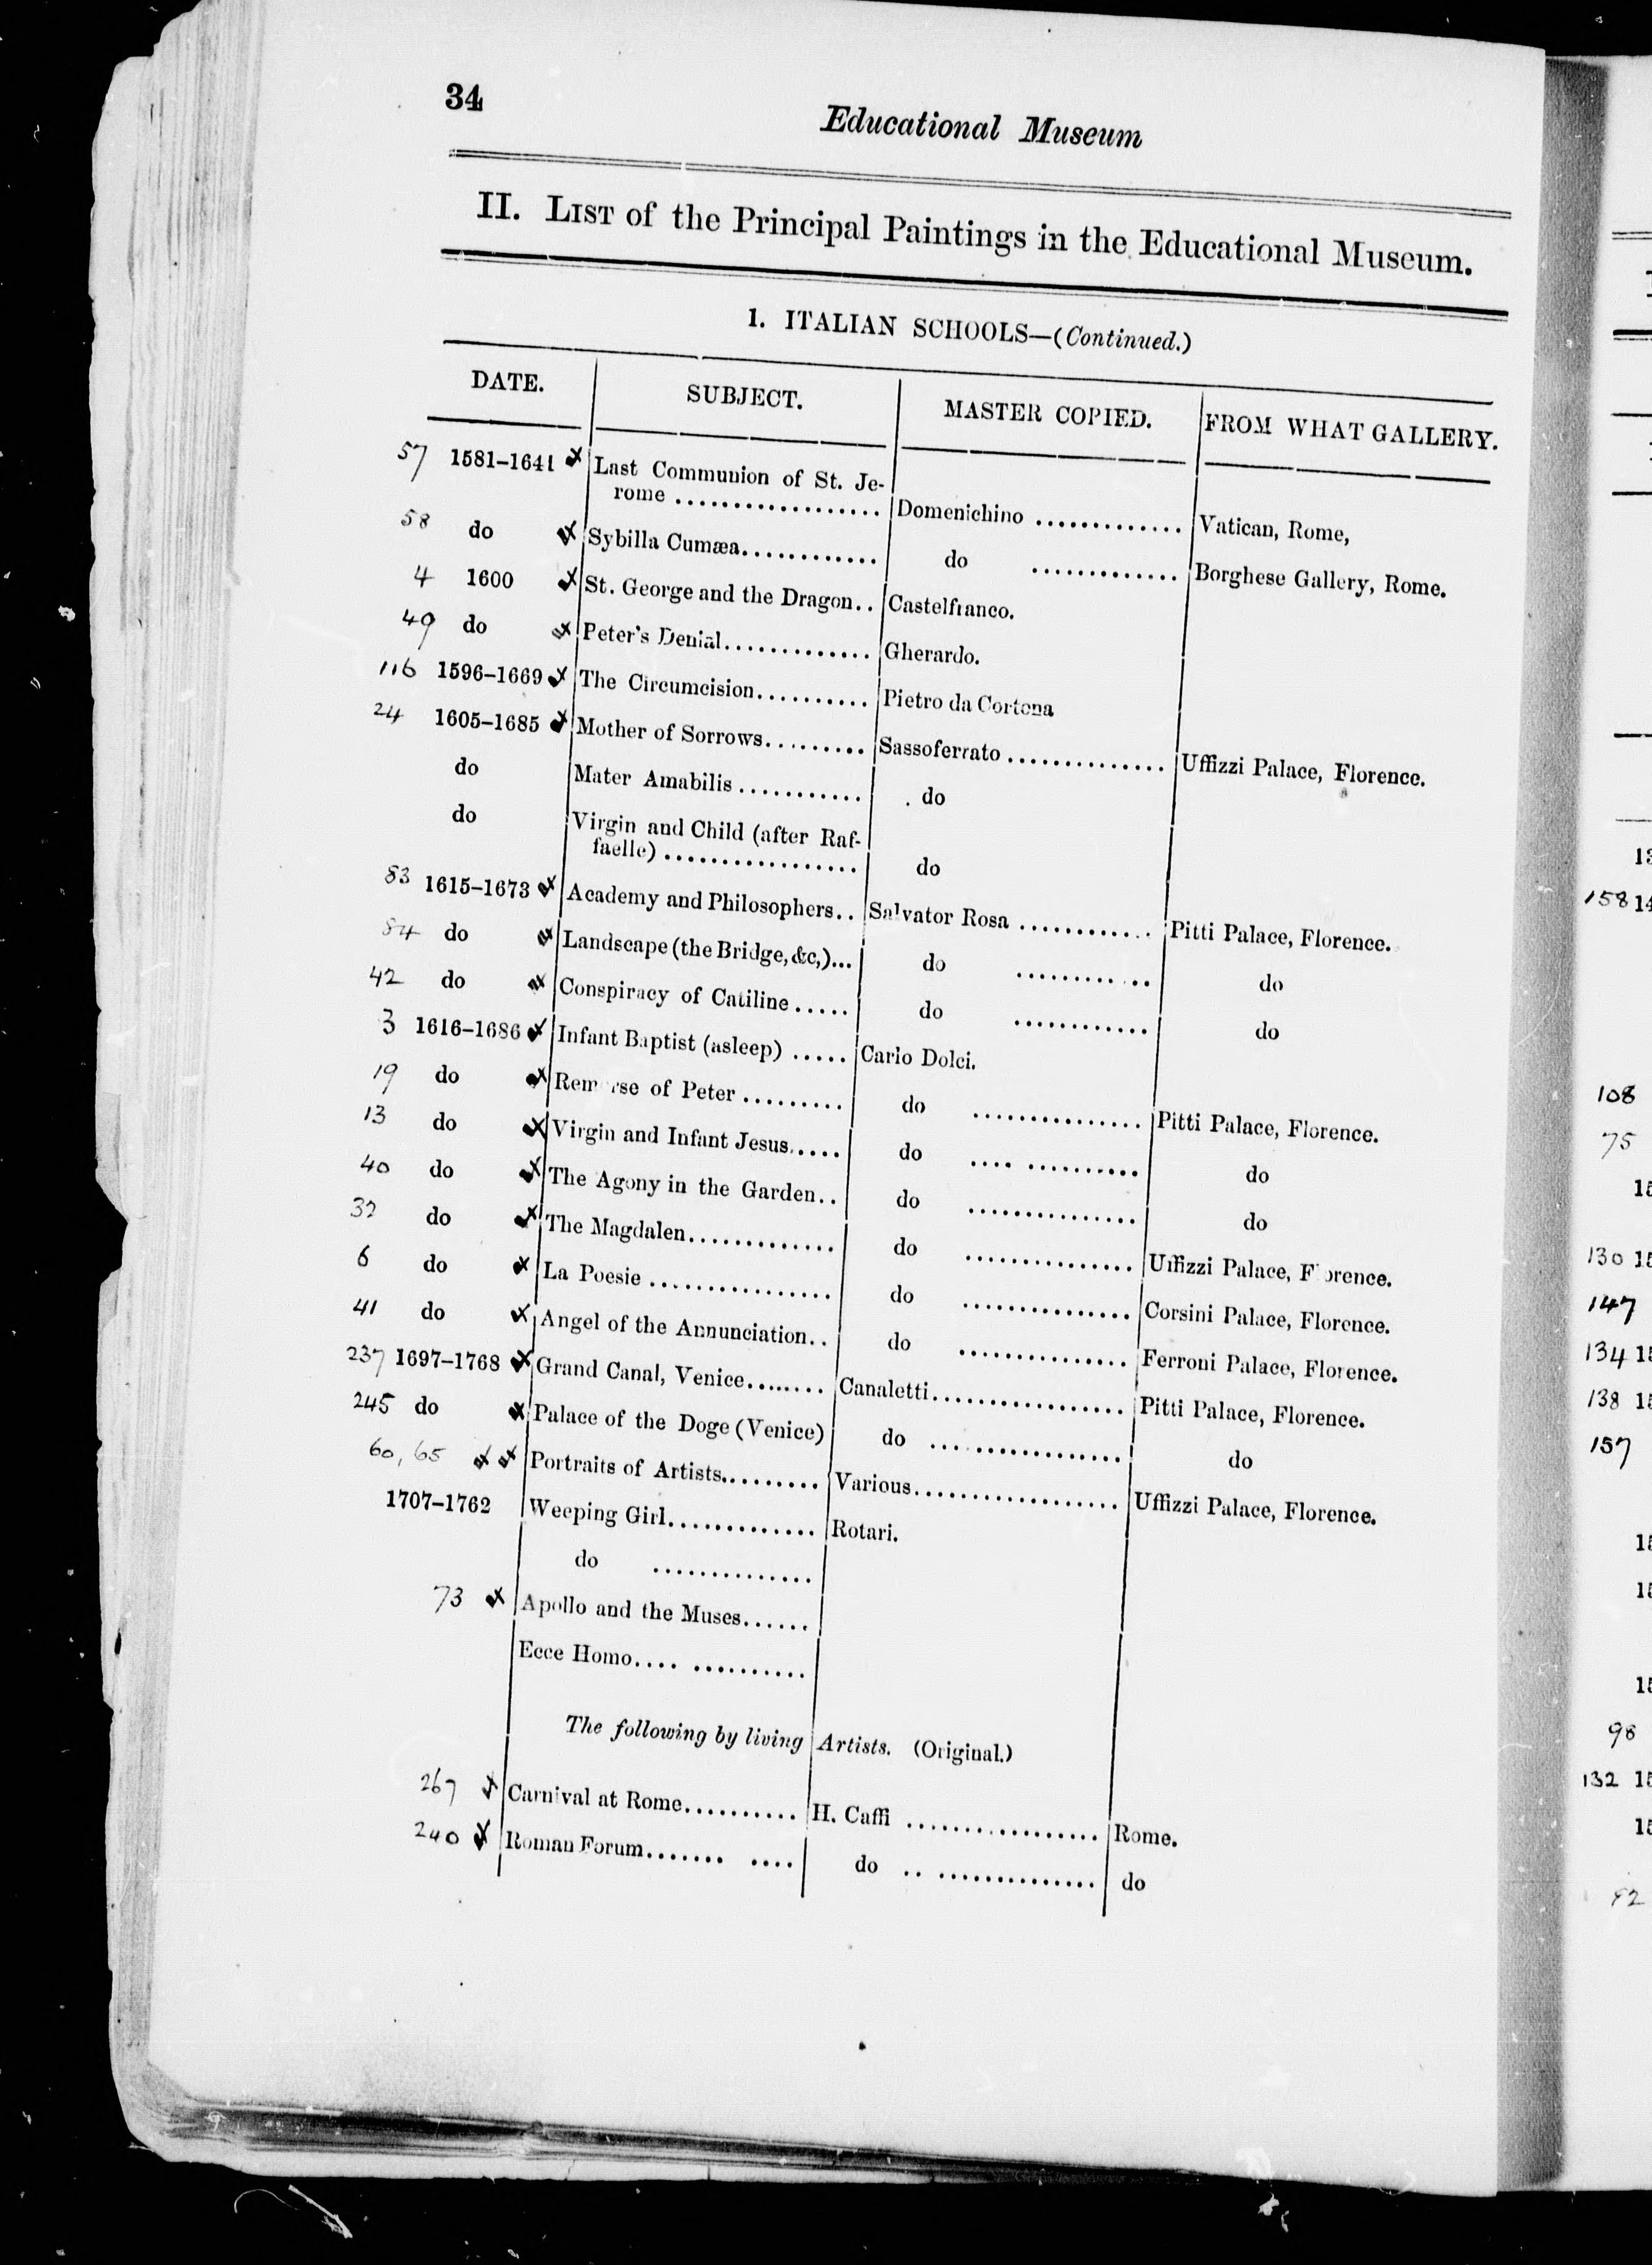 34
Educational Museum
II. LIST of the Principal Paintings in the Educational Museum.
1. ITALIAN SCHOOLS—(Continued.)
DATE. SUBJECT. MASTER COPIED. FROM WHAT GALLERY.
57 1581–1641 Last Communion of St. Je-
rome .................. Domenichino ............. Vatican, Rome,
58 do Sybilla Cumæa............ do ............. Borghese Gallery, Rome.
4 1600 St. George and the Dragon.. Castelfranco.
49 do Peter's Denial............. Gherardo.
116 1596–1669 The Circumcision.......... Pietro da Cortona
24 1605–1685 Mother of Sorrows......... Sassoferrato .............. Uffizzi Palace, Florence.
do Mater Amabilis ........... do
do Virgin and Child (after Raf-
faelle) ................. do
83 1615–1673 Academy and Philosophers.. Salvator Rosa ............ Pitti Palace, Florence.
84 do Landscape (the Bridge, &c,)... do ............ do
42 do Conspiracy of Catiline ..... do ............ do
3 1616–1686 Infant Baptist (asleep) ..... Carlo Dolci.
19 do Rem rse of Peter ......... do ............... Pitti Palace, Florence.
13 do Virgin and Infant Jesus..... do .... .......... do
40 do The Agony in the Garden.. do ............... do
32 do The Magdalen............. do ............... Uffizzi Palace, F orence.
6 do La Poesie ................ do ............... Corsini Palace, Florence.
41 do Angel of the Annunciation.. do ............... Ferroni Palace, Florence.
237 1697–1768 Grand Canal, Venice........ Canaletti................. Pitti Palace, Florence.
245 do Palace of the Doge (Venice) do .... ............. do
60, 65 Portraits of Artists......... Various.................. Uffizzi Palace, Florence.
1707–1762 Weeping Girl............. Rotari.
do ..............
73 Apollo and the Muses......
Ecce Homo.... ..........
The following by living Artists. (Original.)
267 Carnival at Rome.......... H. Caffi ................. Rome.
240 Roman Forum....... .... do .. .............. do
158 14
108
75
130
147
134
138
157
98
132